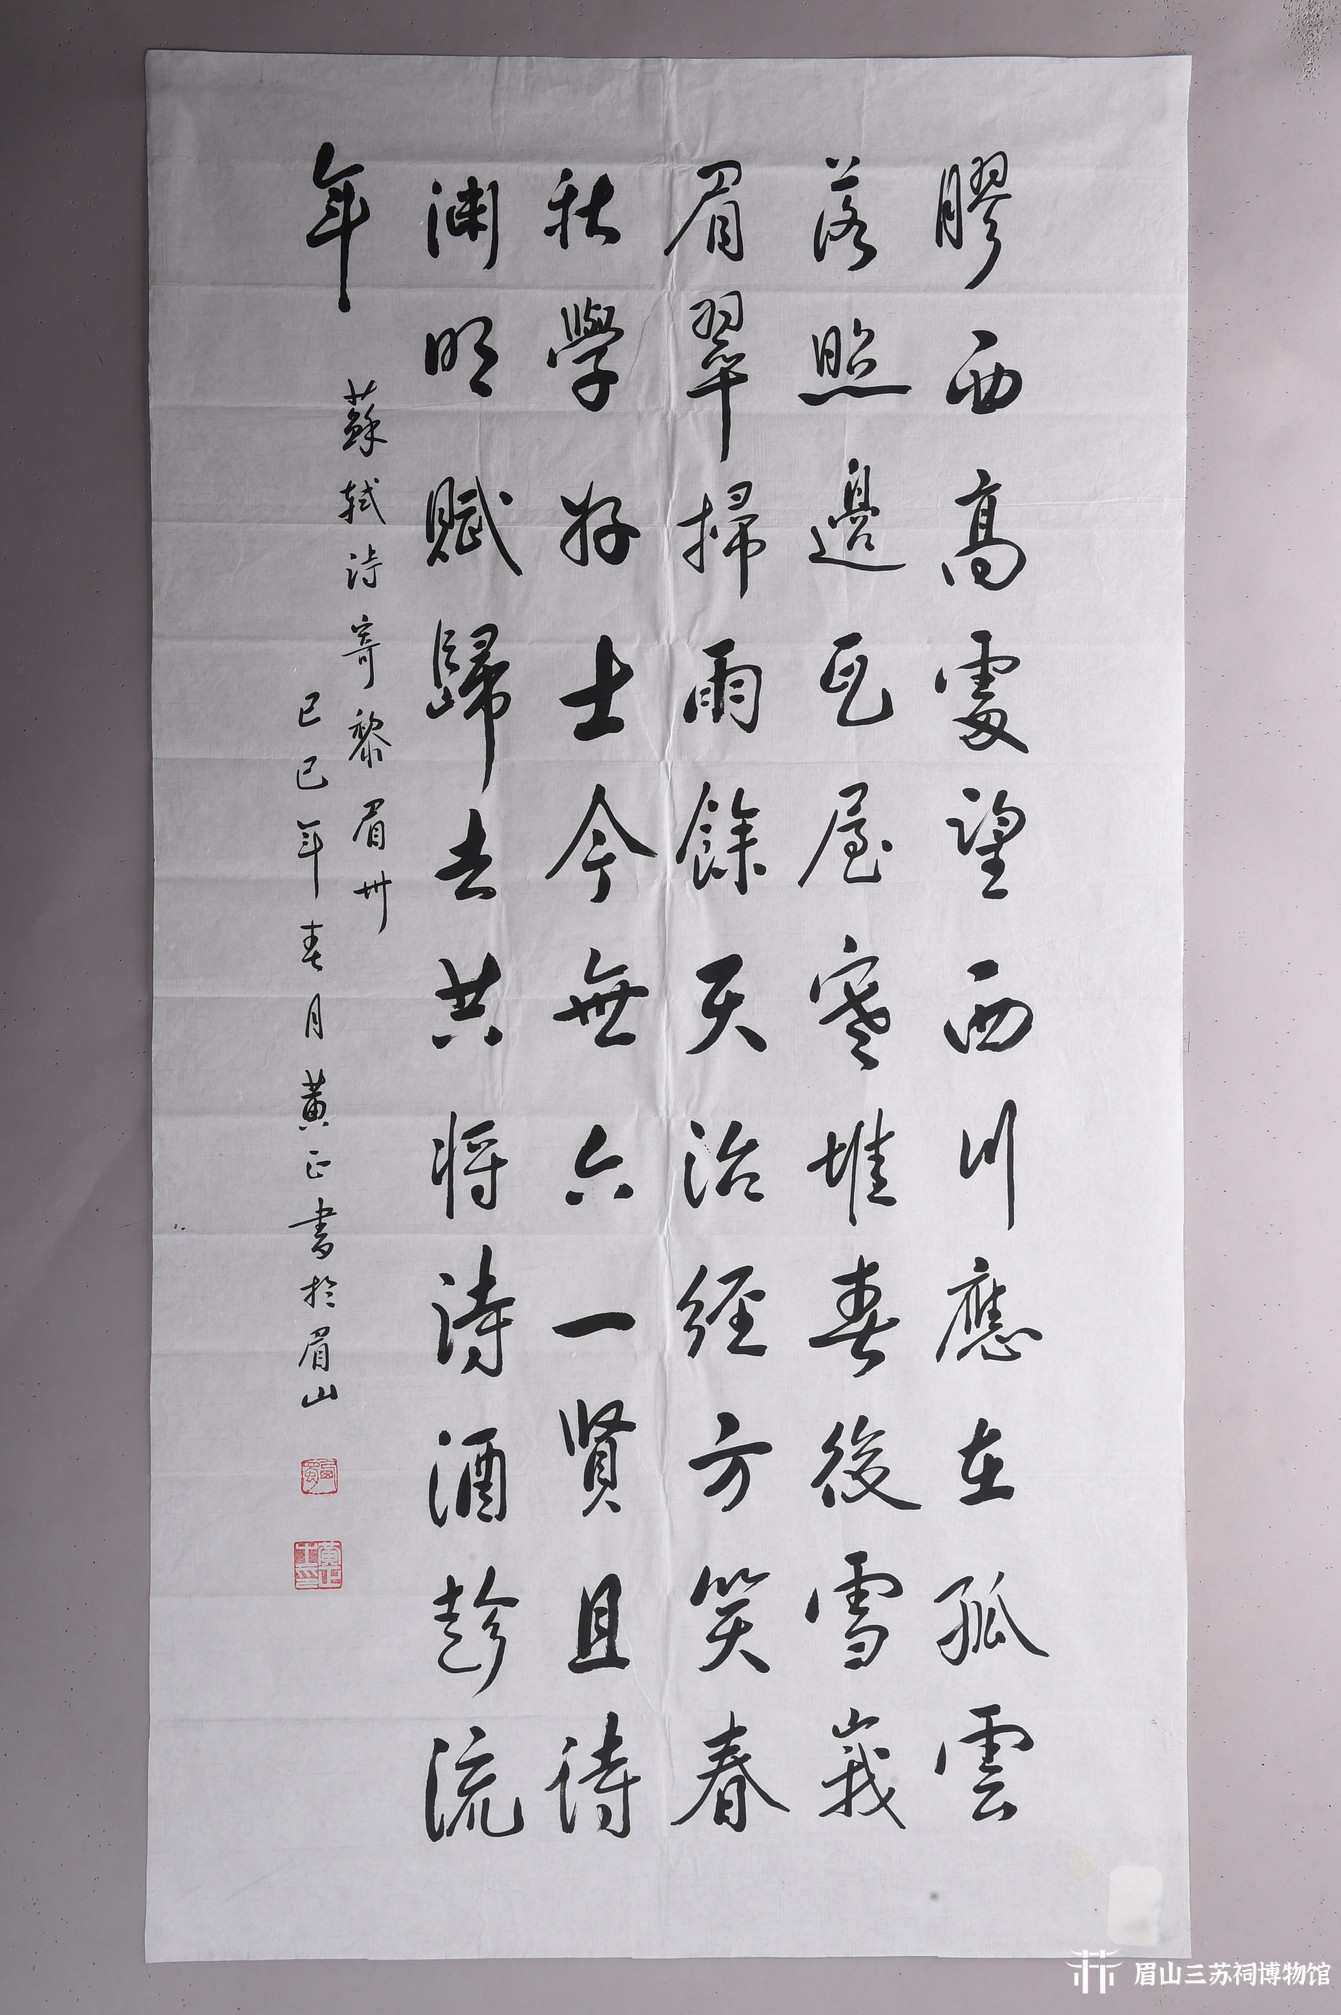 膠西高處望西川應在孤雲
落照邊瓦屋寒堆春後雪峩
眉翠掃雨餘天治經方笑春
秋學好士今無六一賢且待
渊明賦歸去共將詩酒趁流
年
蘇軾詩寄黎眉州
己巳年春月黃正書於眉山
眉山三苏祠博物馆